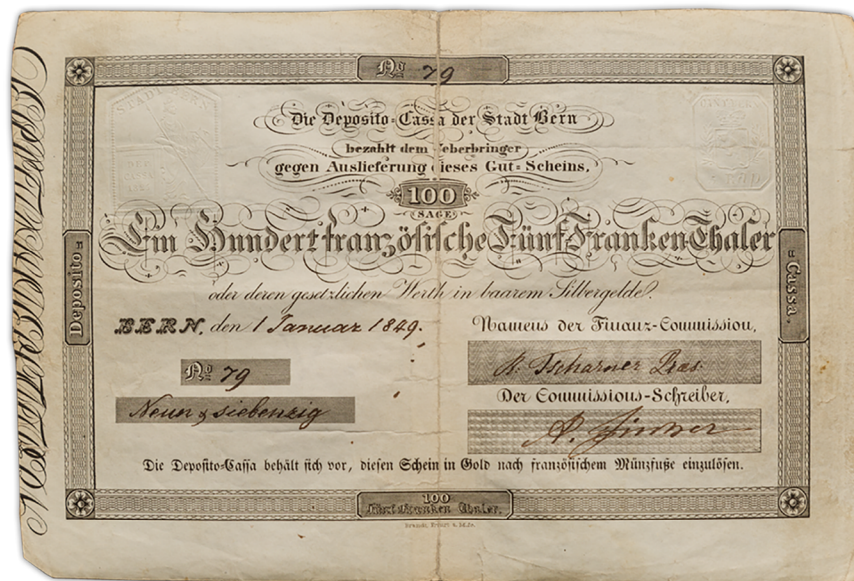 No 79
Die Deposito-Cassa der Stadt Bern
bezahlt dem Ueberbringer
gegen Auslieferung dieses Gut-Scheins,
100
(SAGE)
Ein Hundert französische Fünf Franken Thaler
oder deren gesetzlichen Werth in baarem Silbergelde.
BERN, den 1 Januar 1849.
No 79
Neun & siebenzig
Namens der Finanz-Commission,
Tscharner
Der Commissions-Schreiber,
Die Deposito-Cassa behält sich vor, diesen Schein in Gold nach französischem Münzfuße einzulösen.
Deposito=
=Cassa.
100
Fünf Franken Thaler.
STADT BERN